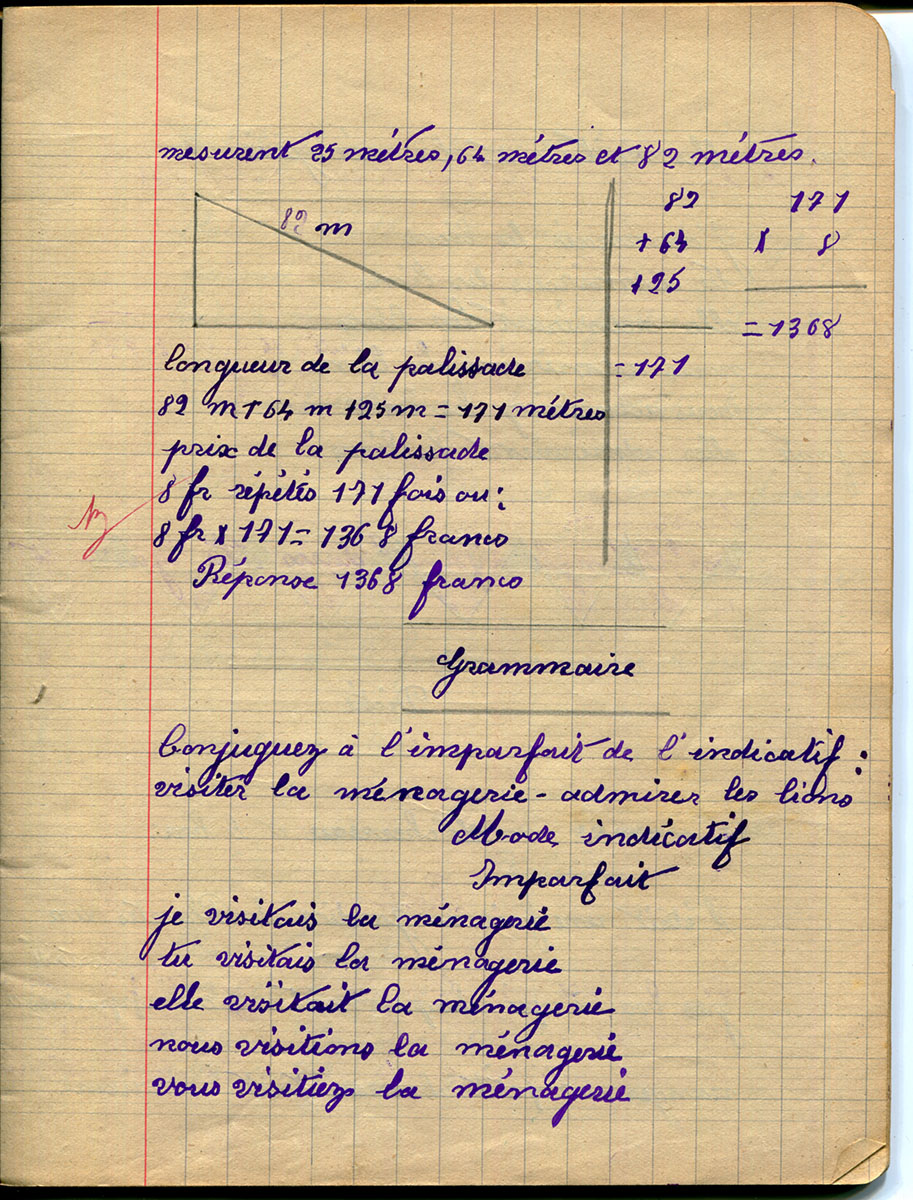 mesurent 25 mètres, 64 mètres et 82 mètres.
82 m
82
+64
+25
= 171
171
x 8
= 1368
longueur de la palissade
82 m + 64 m + 25 m = 171 mètres
prix de la palissade
8 fr répétés 171 fois ou :
8 fr x 171 = 1368 francs
Réponse 1368 francs
Grammaire
Conjuguez à l'imparfait de l'indicatif :
visiter la ménagerie - admirer les lions
Mode indicatif
Imparfait
je visitais la ménagerie
tu visitais la ménagerie
elle visitait la ménagerie
nous visitions la ménagerie
vous visitiez la ménagerie